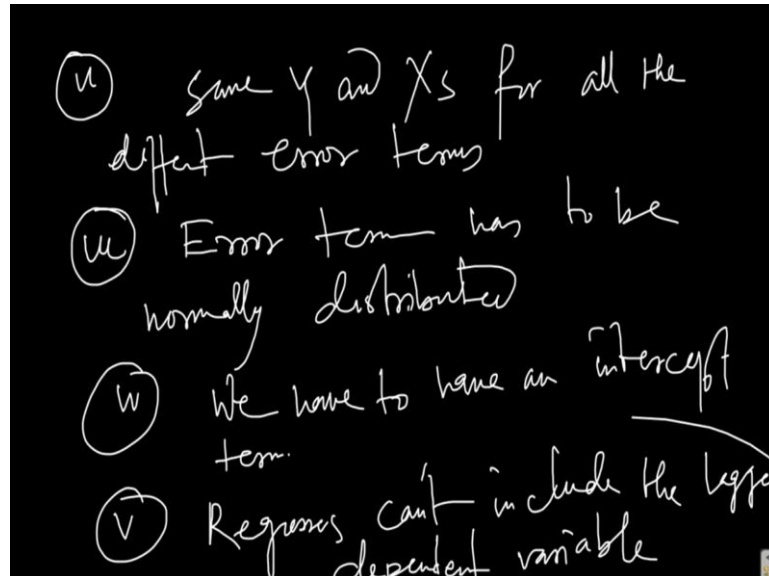 (ii) Same Y and Xs for all the
diffent error terms
(iii) Error term has to be
normally distributed
(iv) We have to have an intercept
term.
(v) Regressors can't include the lagge
dependent variable